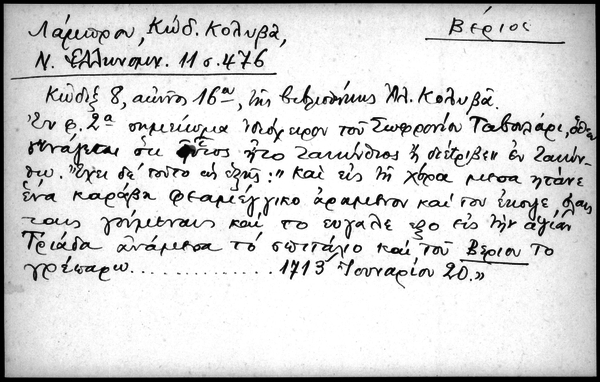 Λάμπρου, Κώδ. Κολυβᾶ,
Βέριος
Ν. Ἑλληνομν. 11 σ. 476
Κῶδιξ 8, αἰῶνος 16ου, τῆς βιβλιοθήκης Ἀλ. Κολυβᾶ.
Ἐν φ. 2α σημείωμα ἰδιόχειρον τοῦ Σωφρονίου Ταβουλάρι, ὅθεν
συνάγεται ὅτι οὗτος ἦτο Ζακύνθιος ἢ διέτριβεν ἐν Ζακύν-
θῳ. Ἔχει δὲ τοῦτο ὡς ἑξῆς: "καὶ εἰς τὴ χόρα μεσα ητανε
ένα καράβι φεαμέγγικο ἀραμενο καὶ του έκοψε
τους γούμεναις καὶ το ευγαλε εξο εἰς τὴν ἁγίαν
Τριάδα ἀνάμεσα τὸ σπιτάλιο καὶ τοῦ Βέριου το
γρέπαρω............. 1713 Ἰουναρίου 20.»